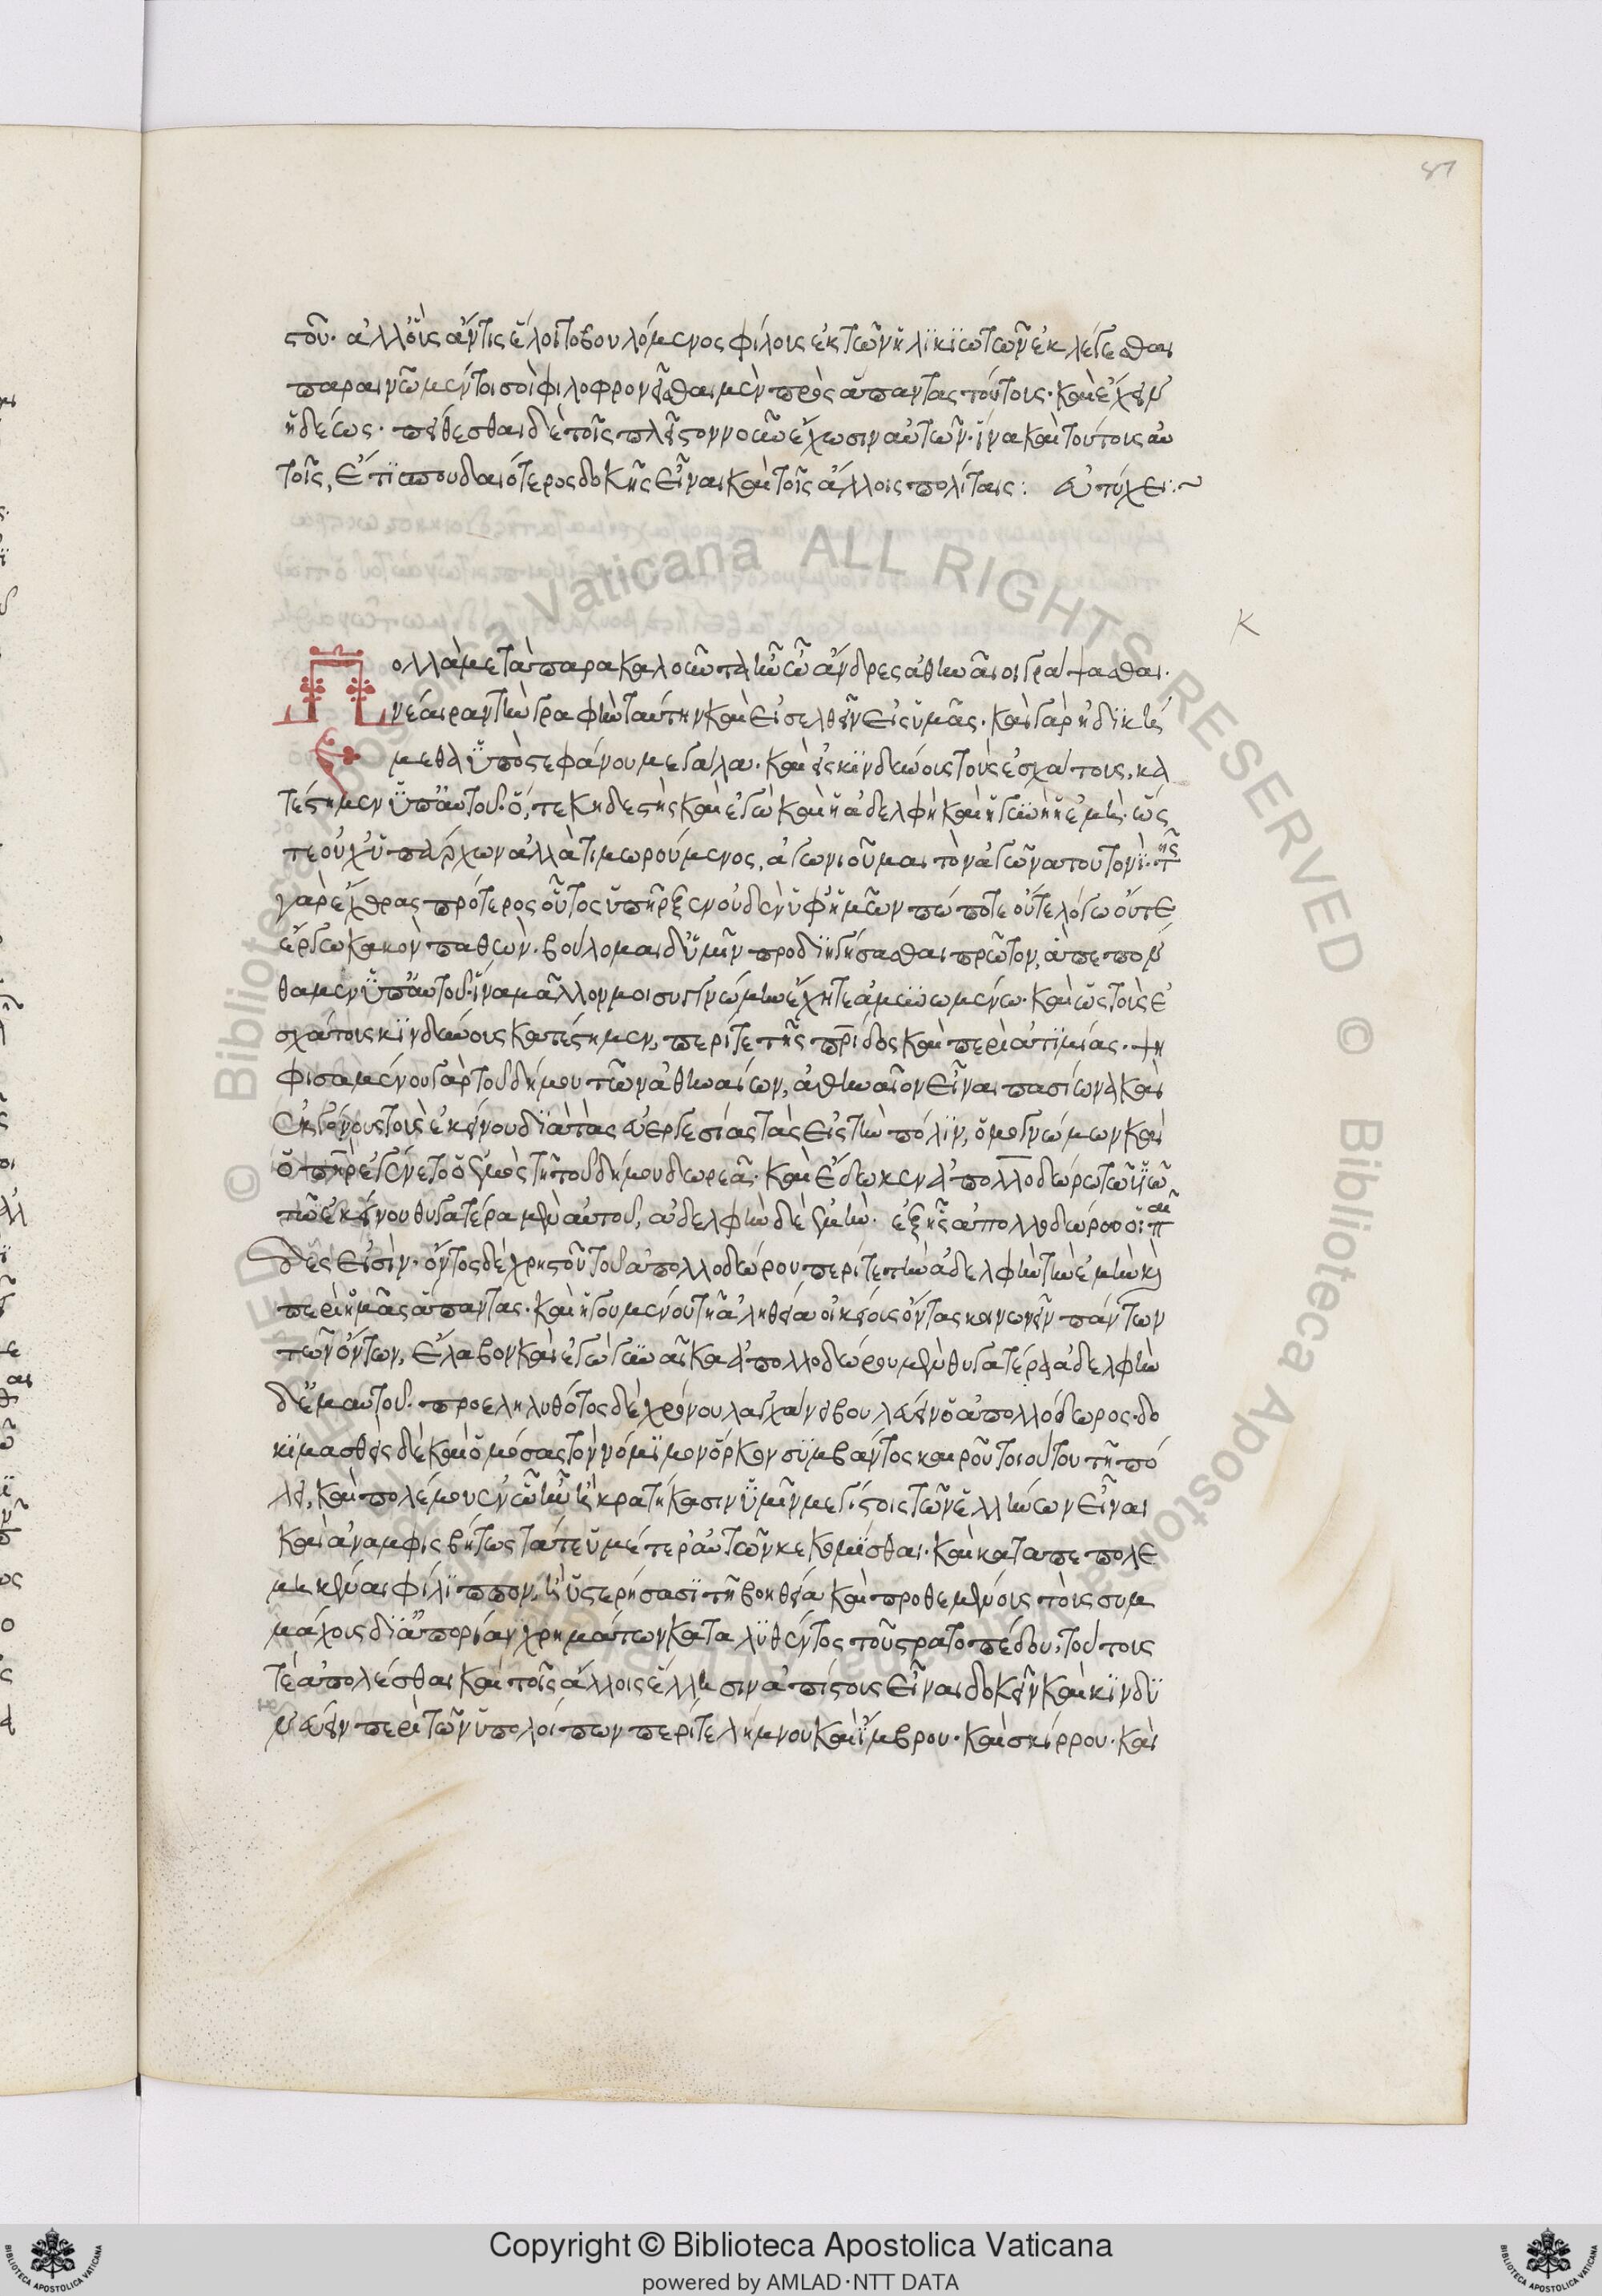 87
στου. ἀλλ' οἷς ἄν τις ἕλοιτο βουλόμενος φίλοις ἐκ τῶν ἡλικιωτῶν ἐκλέγεσθαι
παραινῶ μέντοι σοὶ φιλοφρονεῖσθαι μὲν πρὸς ἅπαντας τούτοις. καὶ ἔχειν
ἡδέως. πείθεσθαι δὲ τοῖς πλεῖστον νοῦν ἔχωσιν αὐτῶν. ἵνα καὶ τούτοις αὐ
τοῖς, ἔτι σπουδαιότερος δοκῇς εἶναι καὶ τοῖς ἄλλοις πολίταις: εὐτύχει:~
κ
Πολλά με τὰ παρακαλοῦντα ἦν ὦ ἄνδρες ἀθηναῖοι γράψασθαι.
νέαιραν τὴν γραφὴν ταύτην καὶ εἰσελθεῖν εἰς ὑμᾶς. καὶ γὰρ ἠδική
μεθα ὑπὸ στεφάνου μεγάλα. καὶ εἰς κινδύνους τοὺς ἐσχάτους, κα
τέστημεν ὑπ' αὐτοῦ. ὅ, τε κηδεστὴς καὶ ἐγὼ καὶ ἡ ἀδελφὴ καὶ ἡ γυνὴ ἡ ἐμή. ὥς
τε οὐχ ὑπάρχων ἀλλὰ τιμωρούμενος, ἀγωνιοῦμαι τὸν ἀγῶνα τουτονί. τῆς
γὰρ ἔχθρας πρότερος οὗτος ὑπῆρξεν οὐδὲν ὑφ' ἡμῶν πώποτε οὔτε λόγω οὔτε
ἔργω κακὸν παθών. βούλομαι δ' ὑμῖν προδιηγήσασθαι πρῶτον, ἃ πεπόν
θαμεν ὑπ' αὐτοῦ. ἵνα μᾶλλόν μοι συγγνώμην ἔχητε ἀμυνωμένω. καὶ ὡς τοὺς ἐ
σχάτοις κινδύνοις κατέστημεν, περί τε τῆς πρίδος καὶ περὶ ἀτιμίας. ψη
φισαμένου γὰρ τοῦ δήμου τῶν ἀθηναίων, ἀθηναῖον εἶναι πασίωνα καὶ
ἐκγόνους τοὺς ἐκείνου διὰ τὰς εὐεργεσίας τὰς εἰς τὴν πόλιν, ὁμογνώμων καὶ
ὁ πηρ ἐγένετο ὁ ἐμὸς τῇ τοῦ δήμου δωρεᾷ. καὶ ἔδωκεν ἀπολλοδώρω τῶ ὑῶ
τῶ ἐκείνου θυγατέρα μὲν αὐτοῦ, ἀδελφὴν δὲ ἐμήν. ἐξ ἧς ἀπολλοδώρου οἱ παῖ
δες εἰσίν. ὄντος δὲ χρηστοῦ τοῦ ἀπολλοδώρου περί τε τὴν ἀδελφὴν τὴν ἐμὴν καὶ
περὶ ἡμᾶς ἅπαντας. καὶ ἡγουμένου τῇ ἀληθείᾳ οἰκείους ὄντας κοινωνεῖν πάντων
τῶν ὄντων, ἔλαβον καὶ ἐγὼ γυναῖκα ἀπολλοδώρου μὲν θυγατέρα ἀδελφὴν
δ' ἐμαυτοῦ. προεληλυθότος δὲ χρόνου λαγχάνει βουλεύειν ὁ ἀπολλόδωρος. δο
κιμασθεὶς δὲ καὶ ὀμόσας τὸν νόμιμον ὅρκον συμβάντος καιροῦ τοιούτου τῇ πό
λει, καὶ πολέμου ἐν ᾧ ἦν ἢ κρατήκασιν ὑμῖν μεγίστοις τῶν ἑλλήνων εἶναι
καὶ ἀναμφισβήτως τά τε ὑμέτερ' αὐτῶν κεκομίσθαι. καὶ καταπεπολε
μηκέναι φίλιππον, ἢ ὑστερήσασι τῇ βοηθείᾳ καὶ προθεμένοις τοὺς συμ
μάχους δι' ἀπορίαν χρημάτων καταλυθέντος τοῦ στρατοπέδου, τούτους
τε ἀπολέσθαι καὶ τοῖς ἄλλοις ἕλλησιν ἀπίστους εἶναι δοκεῖν καὶ κινδυ
νεύειν περὶ τῶν ὑπολοίπων περί τε λήμνου καὶ ἴμβρου. καὶ σκίρρου. καὶ
Copyright © Biblioteca Apostolica Vaticana
powered by AMLAD·NTT DATA